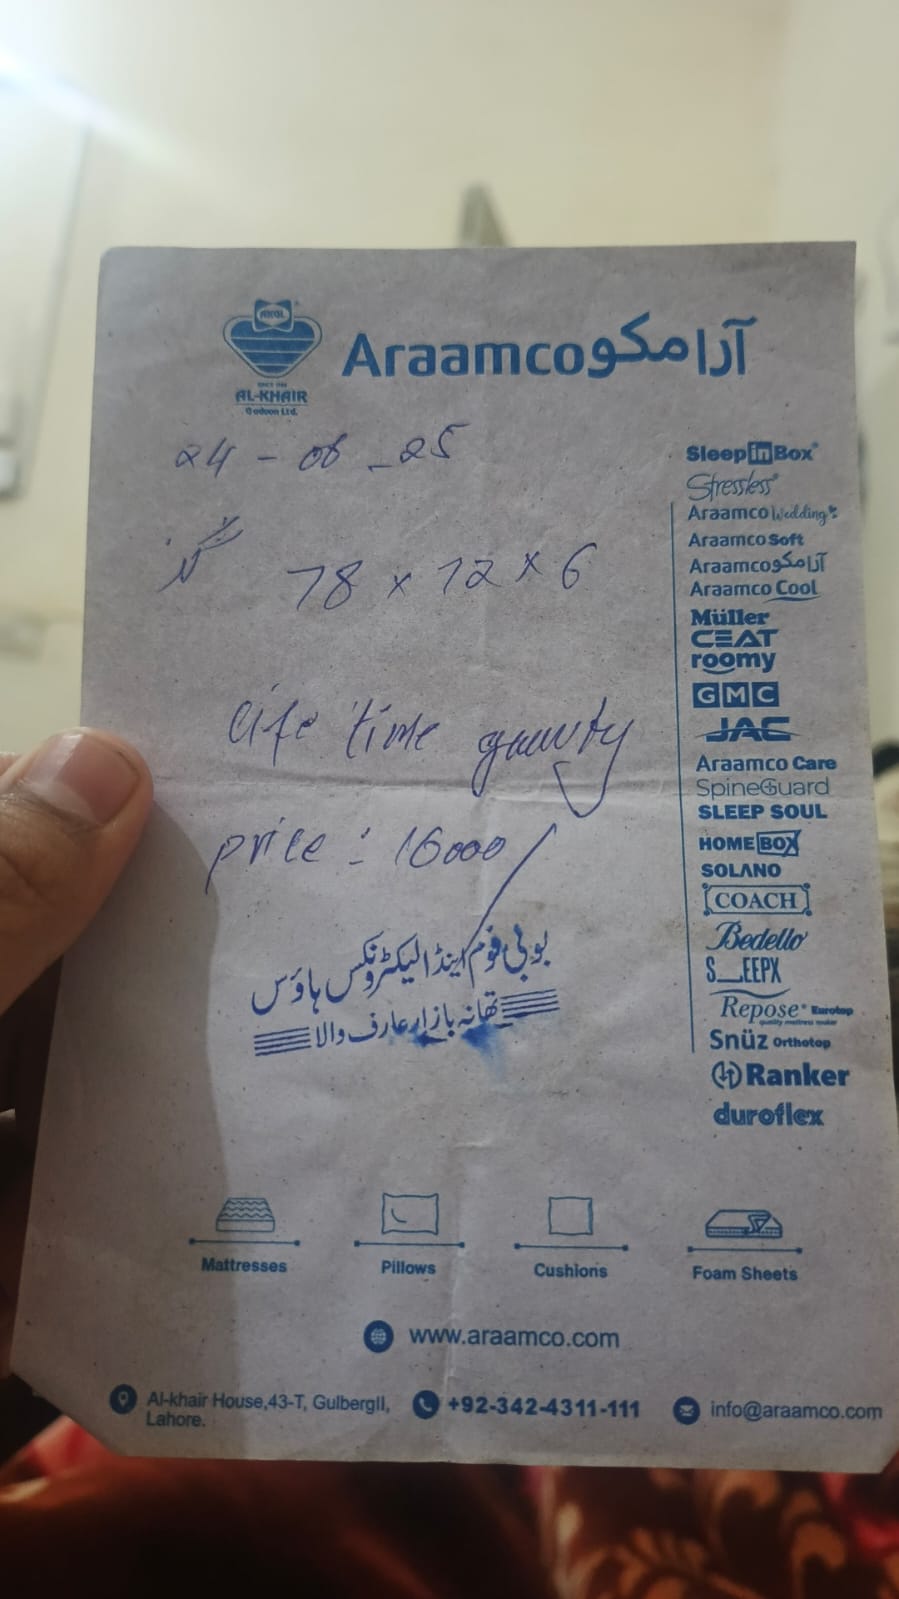 AKGL
SINCE 1986
AL-KHAIR
Gadoon Ltd.
Araamco آرامکو
24 - 06 - 25
78 x 72 x 6
life time
price : 16000
بوبی فوم اینڈ الیکٹرونکس ہاؤس
تھانہ بازار عارف والا
Sleep in Box®
Stressless®
Araamco Wedding
Araamco Soft
Araamco آرامکو
Araamco Cool
Müller
CEAT
roomy
GMC
JAC
Araamco Care
SpineGuard
SLEEP SOUL
HOME BOX
SOLANO
COACH
Bedello
S__EEPX
Repose® Eurotop
quality mattress maker
Snüz Orthotop
Ranker
duroflex
Mattresses Pillows Cushions Foam Sheets
www.araamco.com
Al-khair House,43-T, GulbergII,
Lahore.
+92-342-4311-111
info@araamco.com